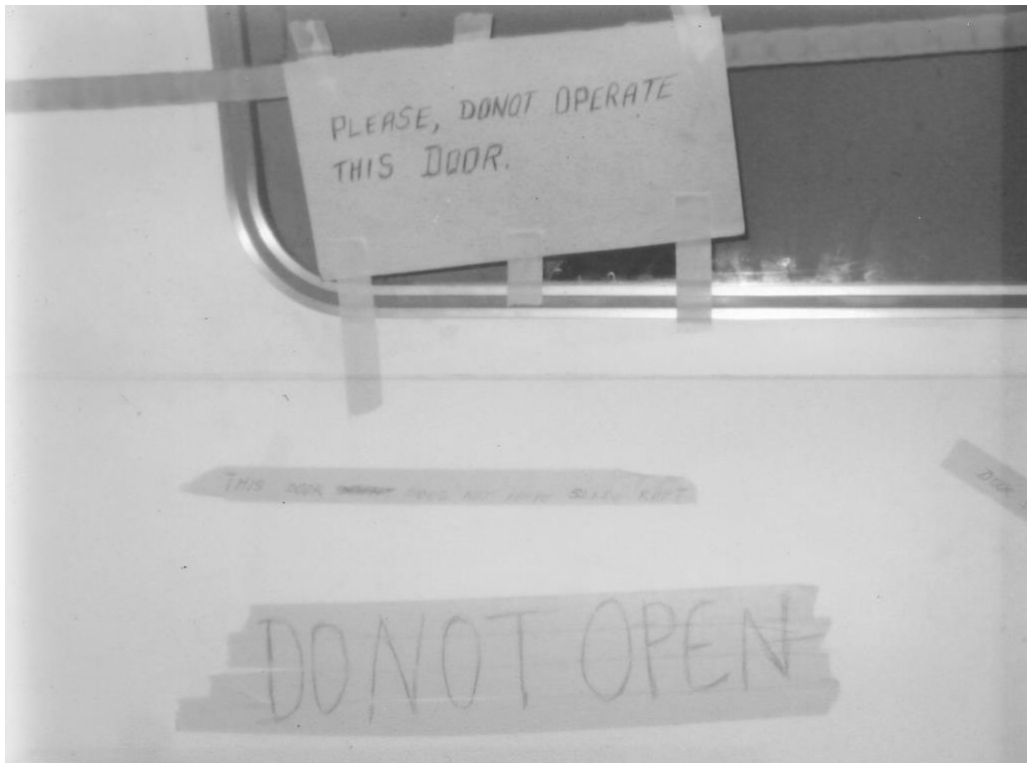 PLEASE, DONOT OPERATE
THIS DOOR.
THIS DOOR DOES NOT HAVE
DOOR
DO NOT OPEN